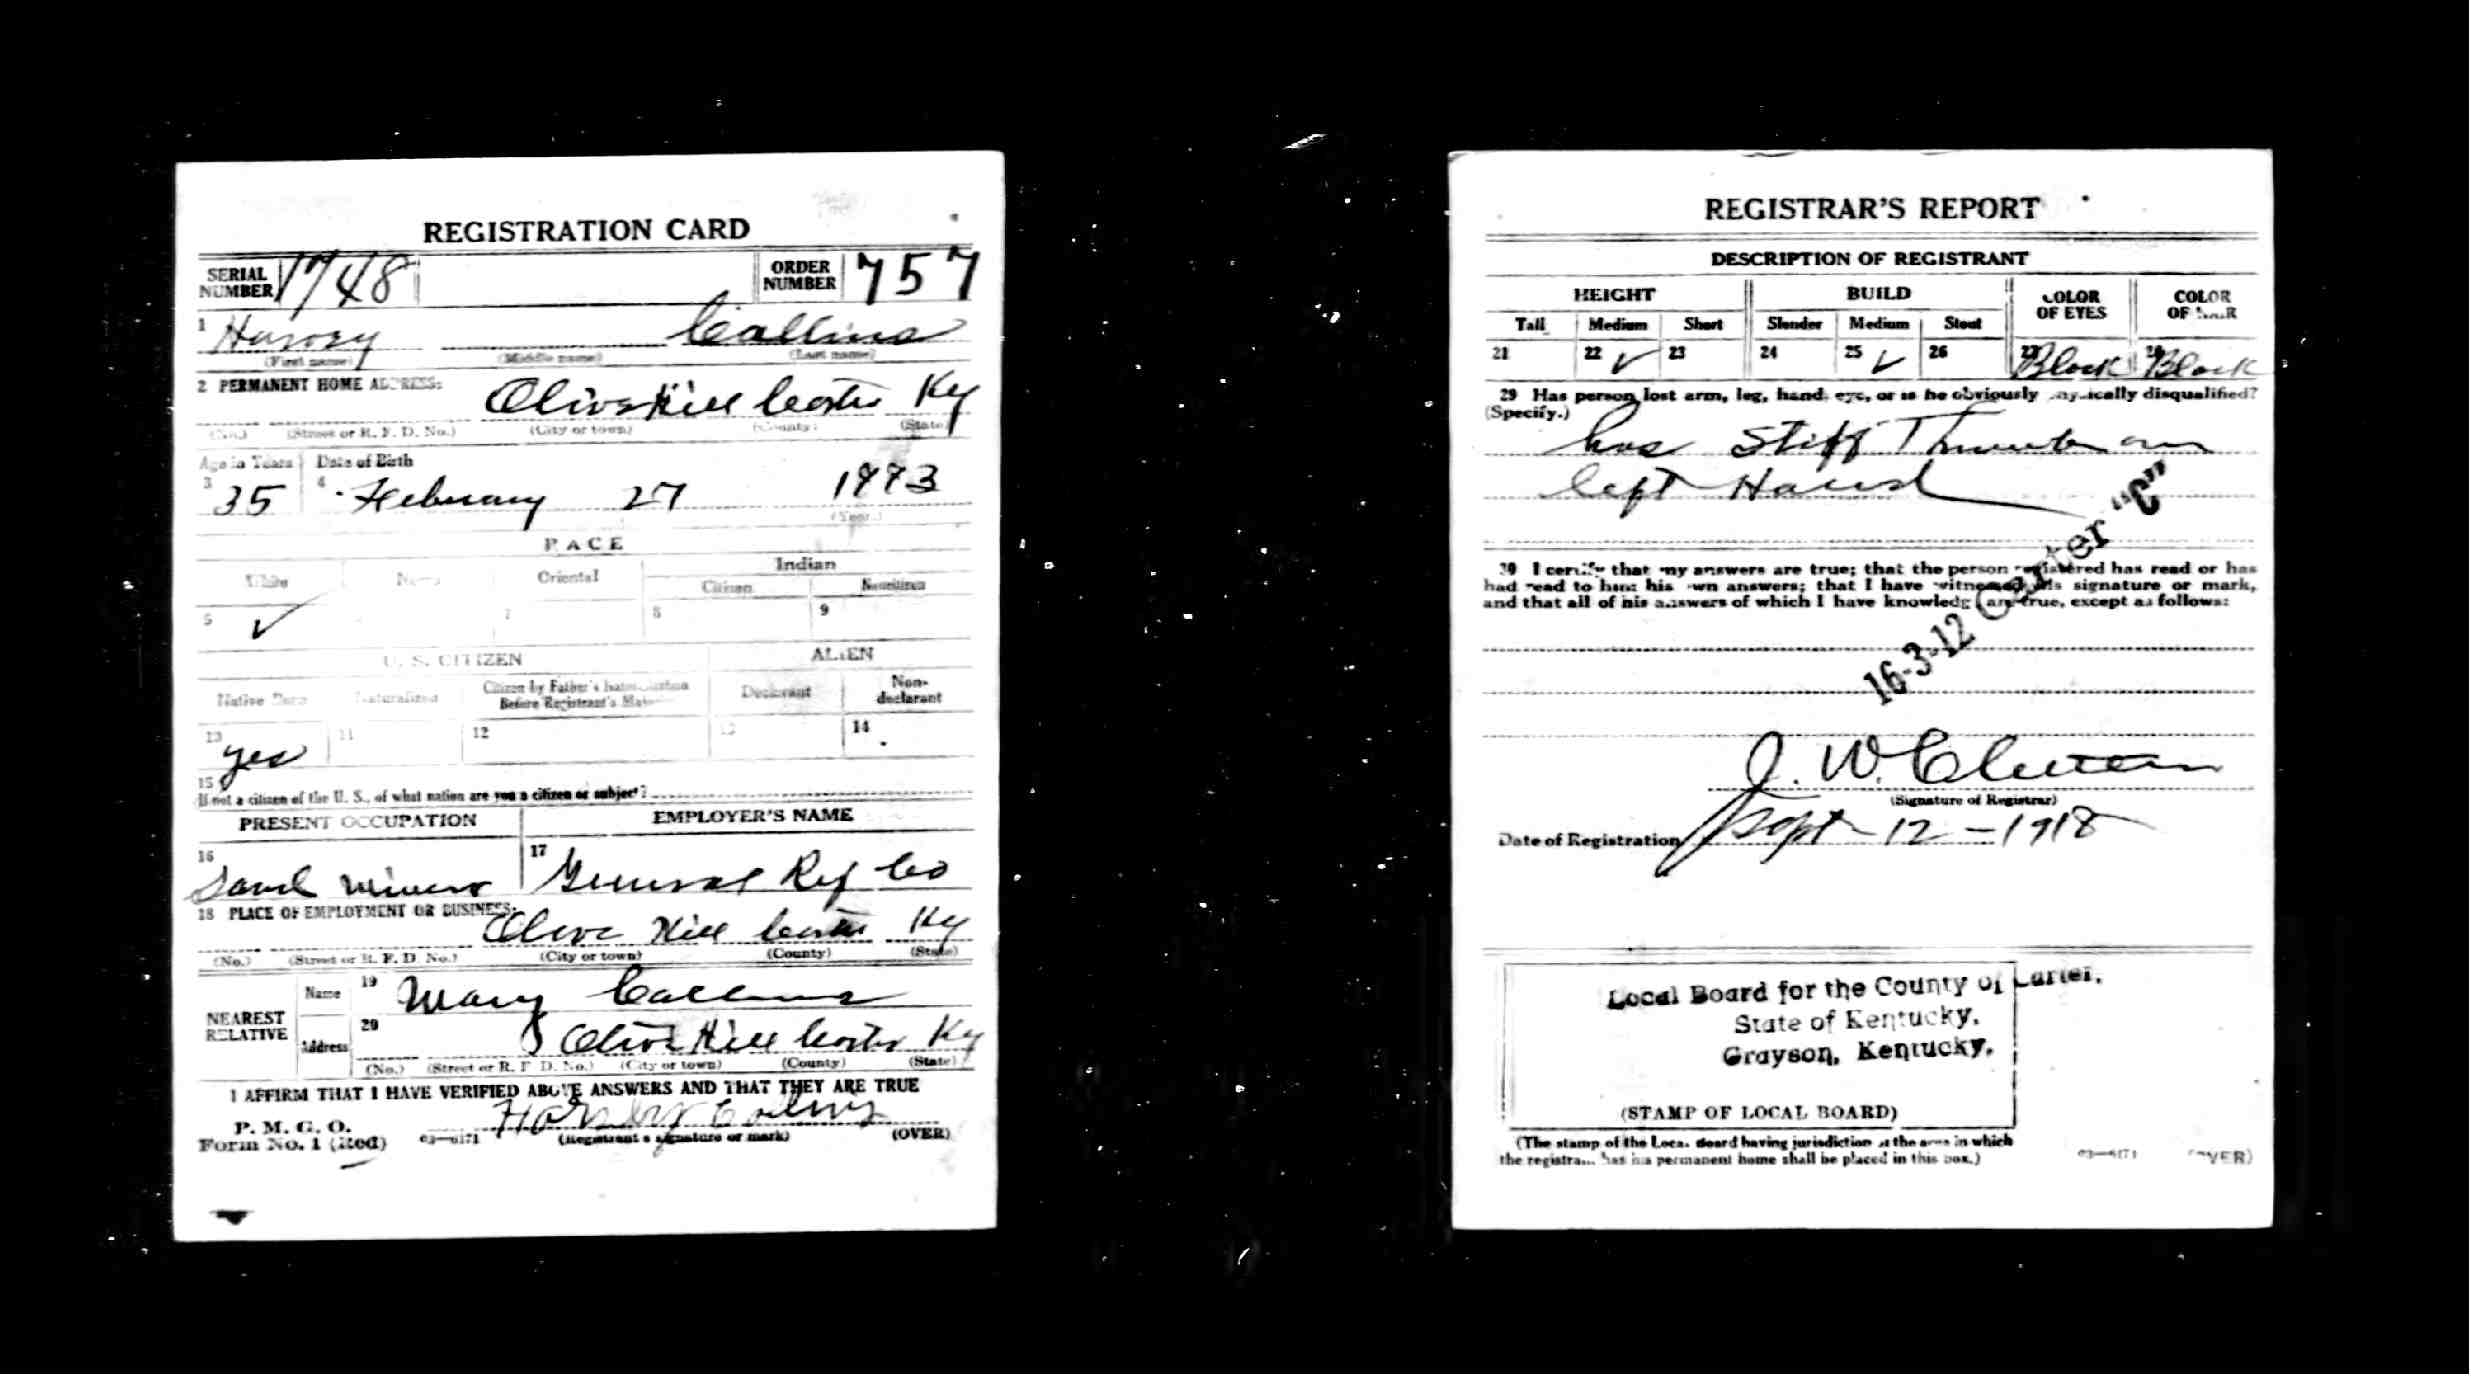 REGISTRATION CARD
SERIAL NUMBER 1748 ORDER NUMBER 757
1 Harvey Collins
(First name) (Middle name) (Last name)
2 PERMANENT HOME ADDRESS:
Olive Hill Carter Ky
(No.) (Street or R. F. D. No.) (City or town) (County) (State)
Age in Years Date of Birth
3 35 4 February 27 1883
(Year.)
RACE
White Negro Oriental Indian
Citizen Noncitizen
5 ✓ 7 8 9
U. S. CITIZEN ALIEN
Native Born Naturalized Citizen by Father's Naturalization Before Registrant's Majority Declarant Non-declarant
10 yes 11 12 13 14
15
If not a citizen of the U. S., of what nation are you a citizen or subject?
PRESENT OCCUPATION EMPLOYER'S NAME
16 Sand miner 17 General Ref Co
18 PLACE OF EMPLOYMENT OR BUSINESS:
Olive Hill Carter Ky
(No.) (Street or R. F. D. No.) (City or town) (County) (State)
NEAREST RELATIVE Name 19 Mary Collins
Address 20 Olive Hill Carter Ky
(No.) (Street or R. F. D. No.) (City or town) (County) (State)
I AFFIRM THAT I HAVE VERIFIED ABOVE ANSWERS AND THAT THEY ARE TRUE
P. M. G. O.
Form No. 1 (Red) 03—6171 Harvey Collins (Registrant's signature or mark) (OVER)
REGISTRAR'S REPORT
DESCRIPTION OF REGISTRANT
HEIGHT BUILD COLOR OF EYES COLOR OF HAIR
Tall Medium Short Slender Medium Stout
21 22 ✓ 23 24 25 ✓ 26 27 Black 28 Black
29 Has person lost arm, leg, hand, eye, or is he obviously physically disqualified?
(Specify.)
has Stiff Thumb on
left Hand
30 I certify that my answers are true; that the person registered has read or has
had read to him his own answers; that I have witnessed his signature or mark,
and that all of his answers of which I have knowledge are true, except as follows:
16-3-12 Carter "C"
J. W.
(Signature of Registrar)
Date of Registration Sept 12 - 1918
Local Board for the County of Carter,
State of Kentucky,
Grayson, Kentucky.
(STAMP OF LOCAL BOARD)
(The stamp of the Local Board having jurisdiction of the area in which
the registrant has his permanent home shall be placed in this box.)
03—6171 (OVER)